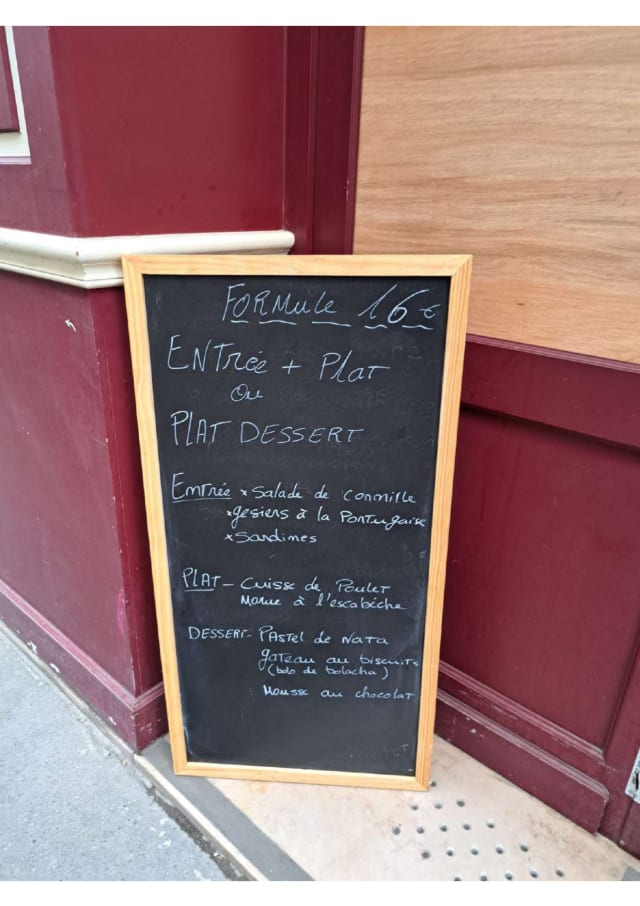 FORMULE 16 €
ENTRée + PLAT
Ou
PLAT DESSERT
Entrée x Salade de Conmille
x gesiers à la Portugaise
x Sardimes
PLAT - Cuisse de Poulet
Morue à l'escabèche
DESSERT - PASTel de NATA
gateau au biscuits
(bolo de bolacha)
Mousse au chocolat